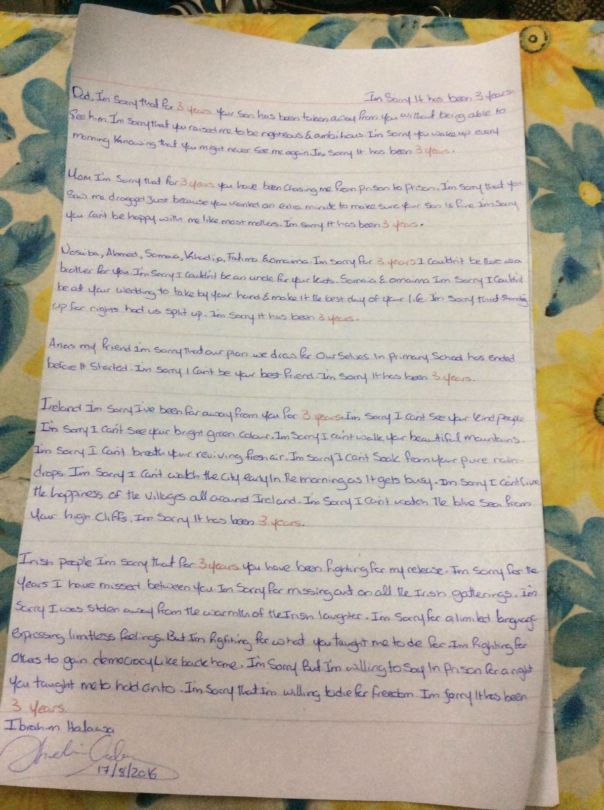 Im Sorry It has been 3 years.
Dad, I'm Sorry that for 3 years your Son has been taken away from you without being able to
See him. Im Sorry that you raised me to be righteous & ambitious. I'm Sorry you wake up every
morning Knowing that you might never See me again. I'm Sorry It has been 3 years.
Mom I'm Sorry that for 3 years you have been Chasing me from prison to Prison. I'm Sorry that you
Saw me dragged Just because you wanted an extra minute to make sure your Son Is fine. I'm Sorry
you Cant be happy with me like most mothers. Im Sorry It has been 3 years.
Nosaiba, Ahmed, Somaia, Khadija, Fatima & Omaima. Im Sorry for 3 years I Couldn't be there as a
brother for you. I'm Sorry I Couldn't be an uncle for your kids. Somaia & omaima Im Sorry I Couldn't
be at your wedding to take by your hand & make It the best day of your life. I'm Sorry that Standing
up for rights had us Split up. I'm Sorry It has been 3 years.
Anas my friend I'm Sorry that our plan we draw for Ourselves In Primary School has ended
before It Started. I'm Sorry I Cant be your best friend. I'm Sorry It has been 3 years.
Ireland Im Sorry I've been far away from you for 3 years. I'm Sorry I Cant See your kind people
I'm Sorry I Can't See your bright green Colour. I'm Sorry I can't walk your beautiful mountains.
I'm Sorry I Can't breath your reviving fresh air. I'm Sorry I Can't Soak from your pure rain-
drops. I'm Sorry I Can't watch the City early In the morning as It gets busy. I'm Sorry I Cant live
the happiness of the Villages all around Ireland. I'm Sorry I Can't watch the blue Sea from
your high Cliffs. I'm Sorry It has been 3 years.
Irish people I'm Sorry that for 3 years you have been fighting for my release. I'm Sorry for the
years I have missed between you. Im Sorry for missing out on all the Irish gatherings. I'm
Sorry I was Stolen away from the warmth of the Irish laughter. I'm Sorry for a limited language
Expressing limitless feelings. But I'm fighting for what you taught me to die for. I'm fighting for
Others to gain democracy Like back home. I'm Sorry but I'm willing to Stay In Prison for a right
you taught me to hold onto. I'm Sorry that I'm willing to die for freedom. Im Sorry It has been
3 years.
Ibrahim Halawa
17/8/2016